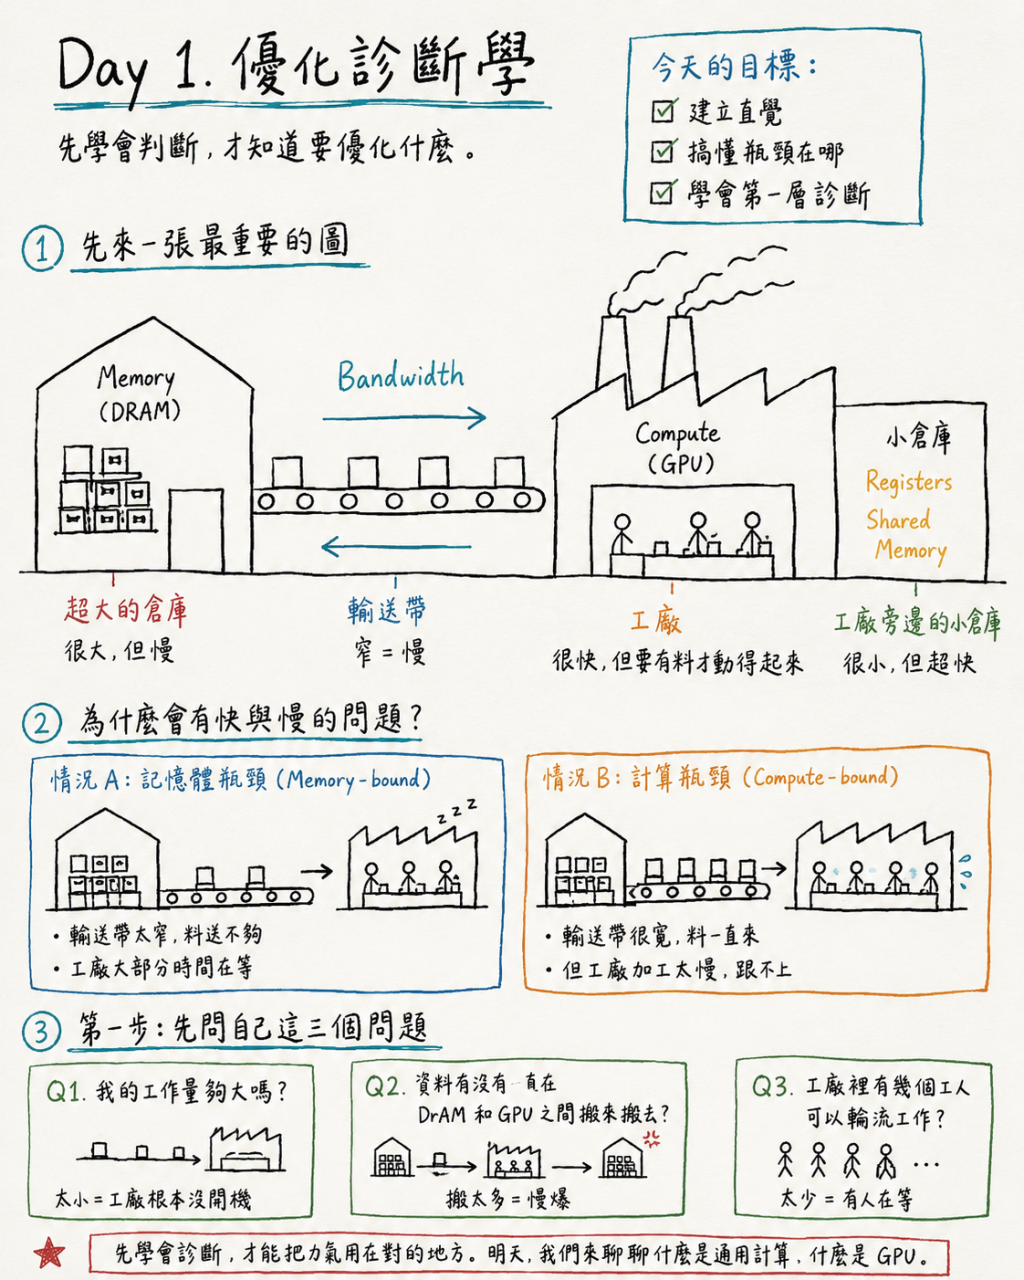 Day 1. 優化診斷學
先學會判斷,才知道要優化什麼。
今天的目標:
建立直覺
搞懂瓶頸在哪
學會第一層診斷
1 先來一張最重要的圖
Memory
(DRAM)
Bandwidth
Compute
(GPU)
小倉庫
Registers
Shared
Memory
超大的倉庫
很大,但慢
輸送帶
窄=慢
工廠
很快,但要有料才動得起來
工廠旁邊的小倉庫
很小,但超快
2 為什麼會有快與慢的問題?
情況 A: 記憶體瓶頸 (Memory-bound)
z z z
• 輸送帶太窄,料送不夠
• 工廠大部分時間在等
情況 B: 計算瓶頸 (Compute-bound)
• 輸送帶很寬,料一直來
• 但工廠加工太慢,跟不上
3 第一步:先問自己這三個問題
Q1. 我的工作量夠大嗎?
太小=工廠根本沒開機
Q2. 資料有沒有一直在
DrAM 和 GPU 之間搬來搬去?
搬太多=慢爆
Q3. 工廠裡有幾個工人
可以輪流工作?
...
太少=有人在等
先學會診斷,才能把力氣用在對的地方。明天,我們來聊聊什麼是通用計算,什麼是 GPU。